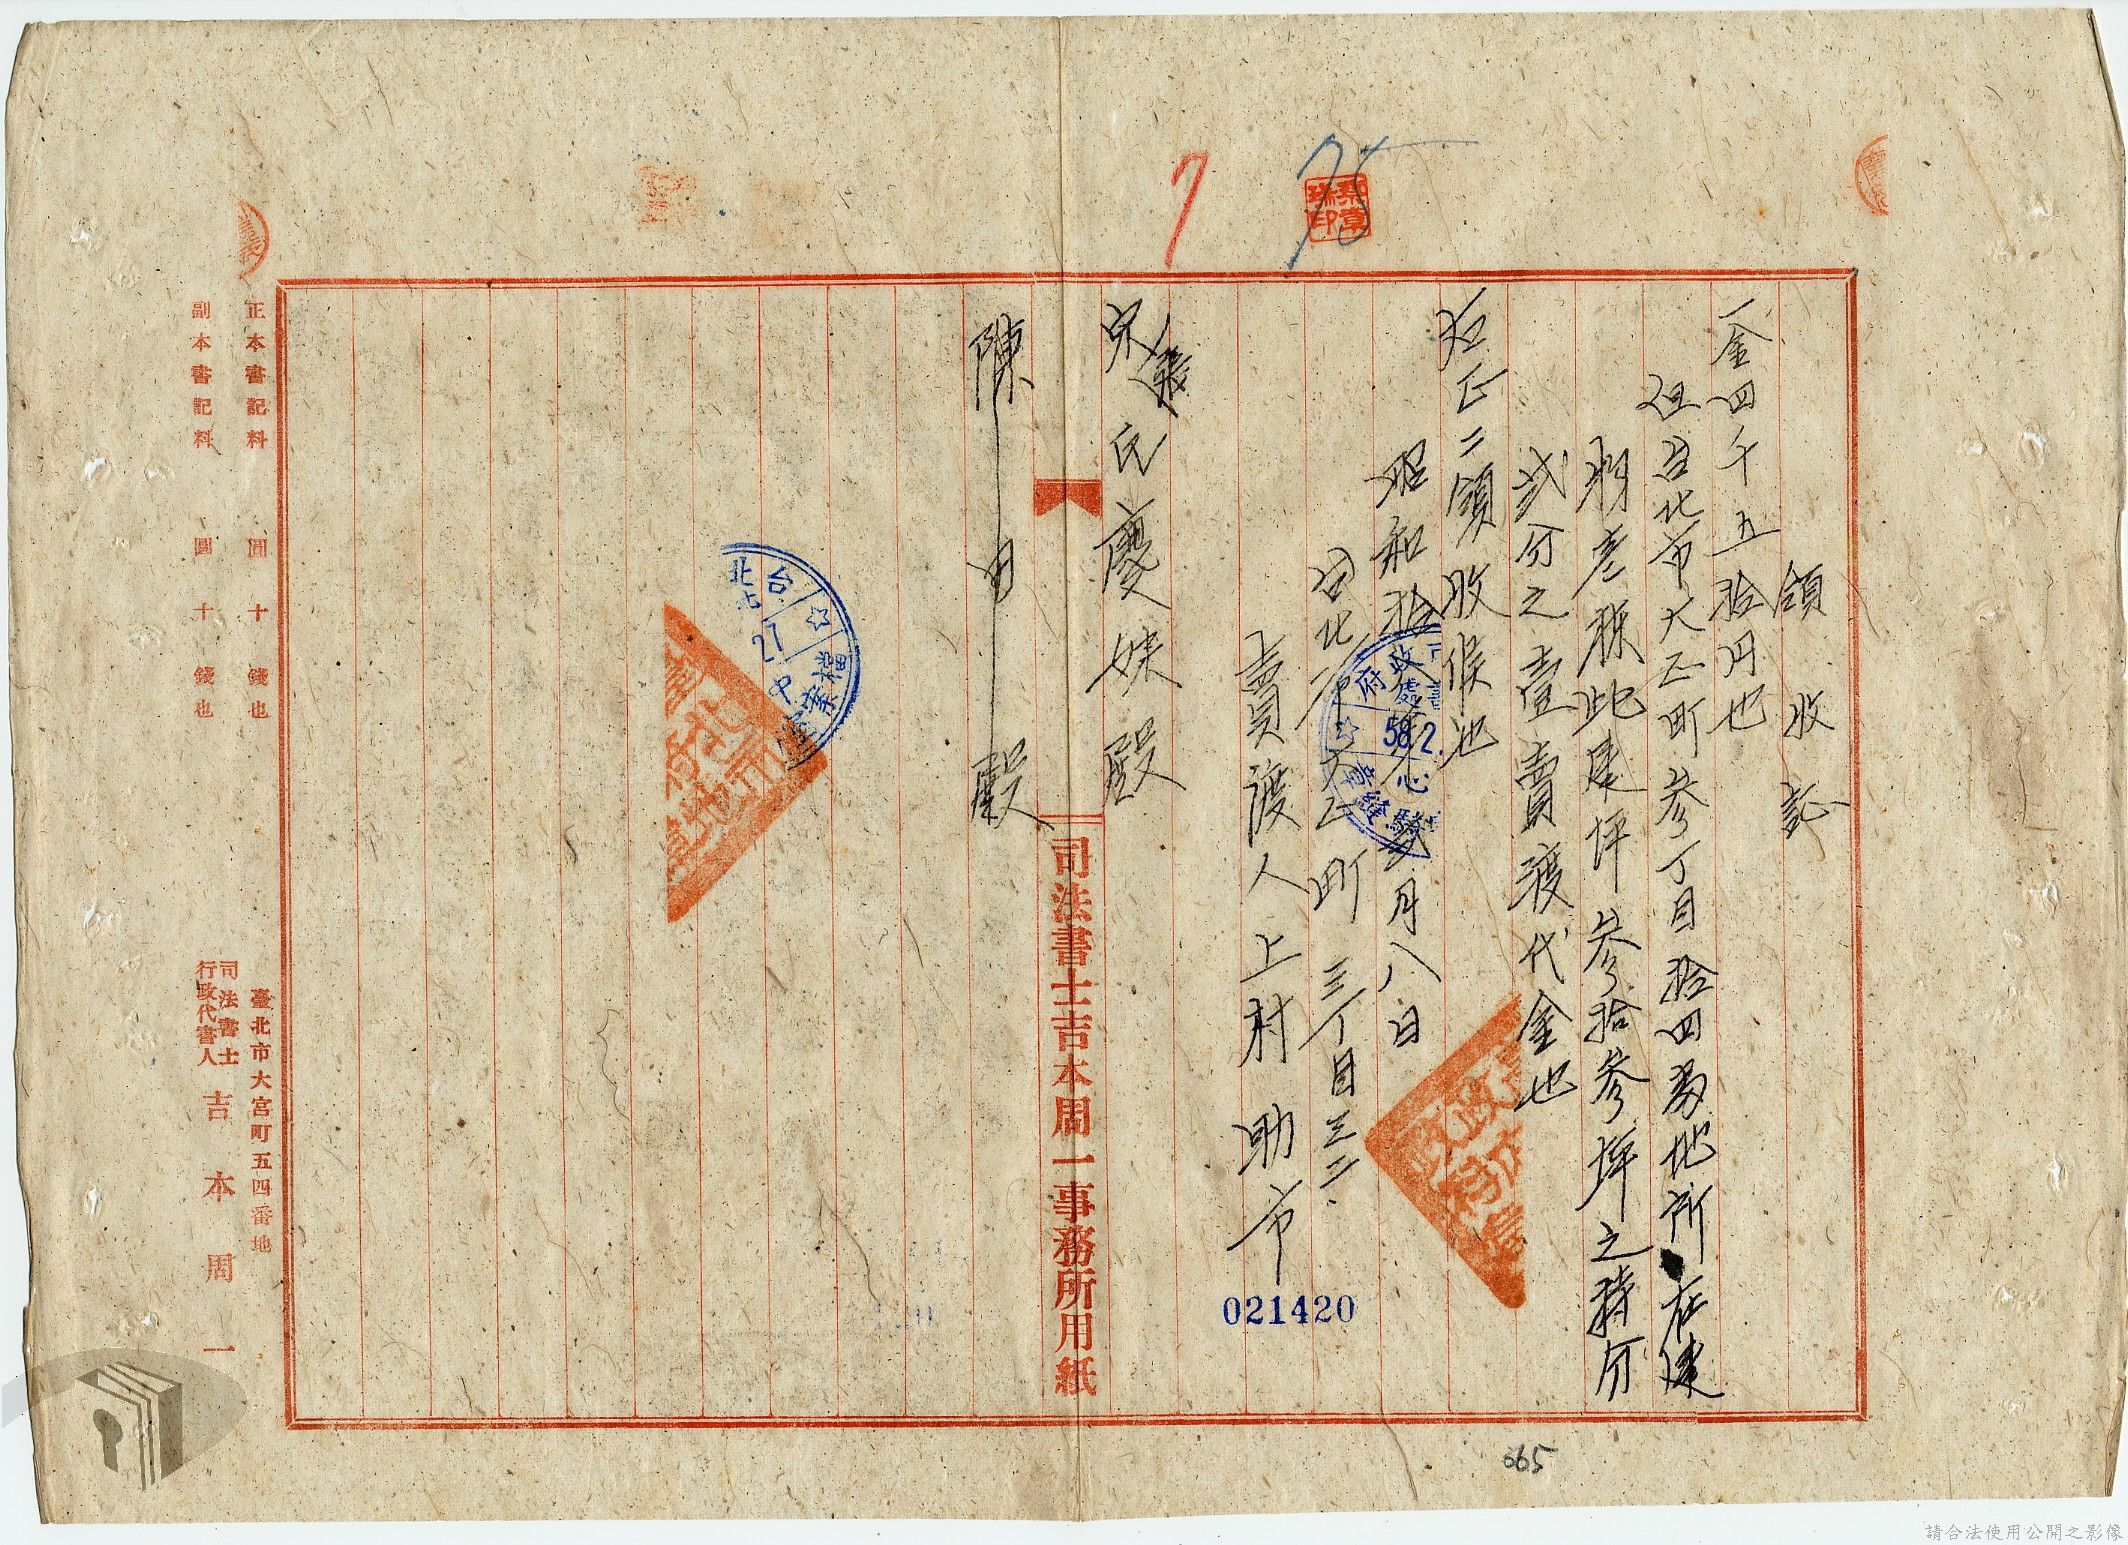 領收証
一金四千五拾円也
但台北市大正町参丁目拾四番地所在建
物壱棟此建坪参拾参坪之持分
弐分之壹賣渡代金也
右正ニ領收候也
昭和拾 月八日
台北市大正町三丁目三二
賣渡人上村助市
宋張氏慶妹殿
陳 殿
司法書士吉本周一事務所用紙
正本書記料 圓 十 錢也
副本書記料 圓 十 錢也
臺北市大宮町五四番地
司法書士
行政代書人
吉本周一
7
75
蔡章
瑞印
58.2.
27
021420
665
請合法使用公開之影像